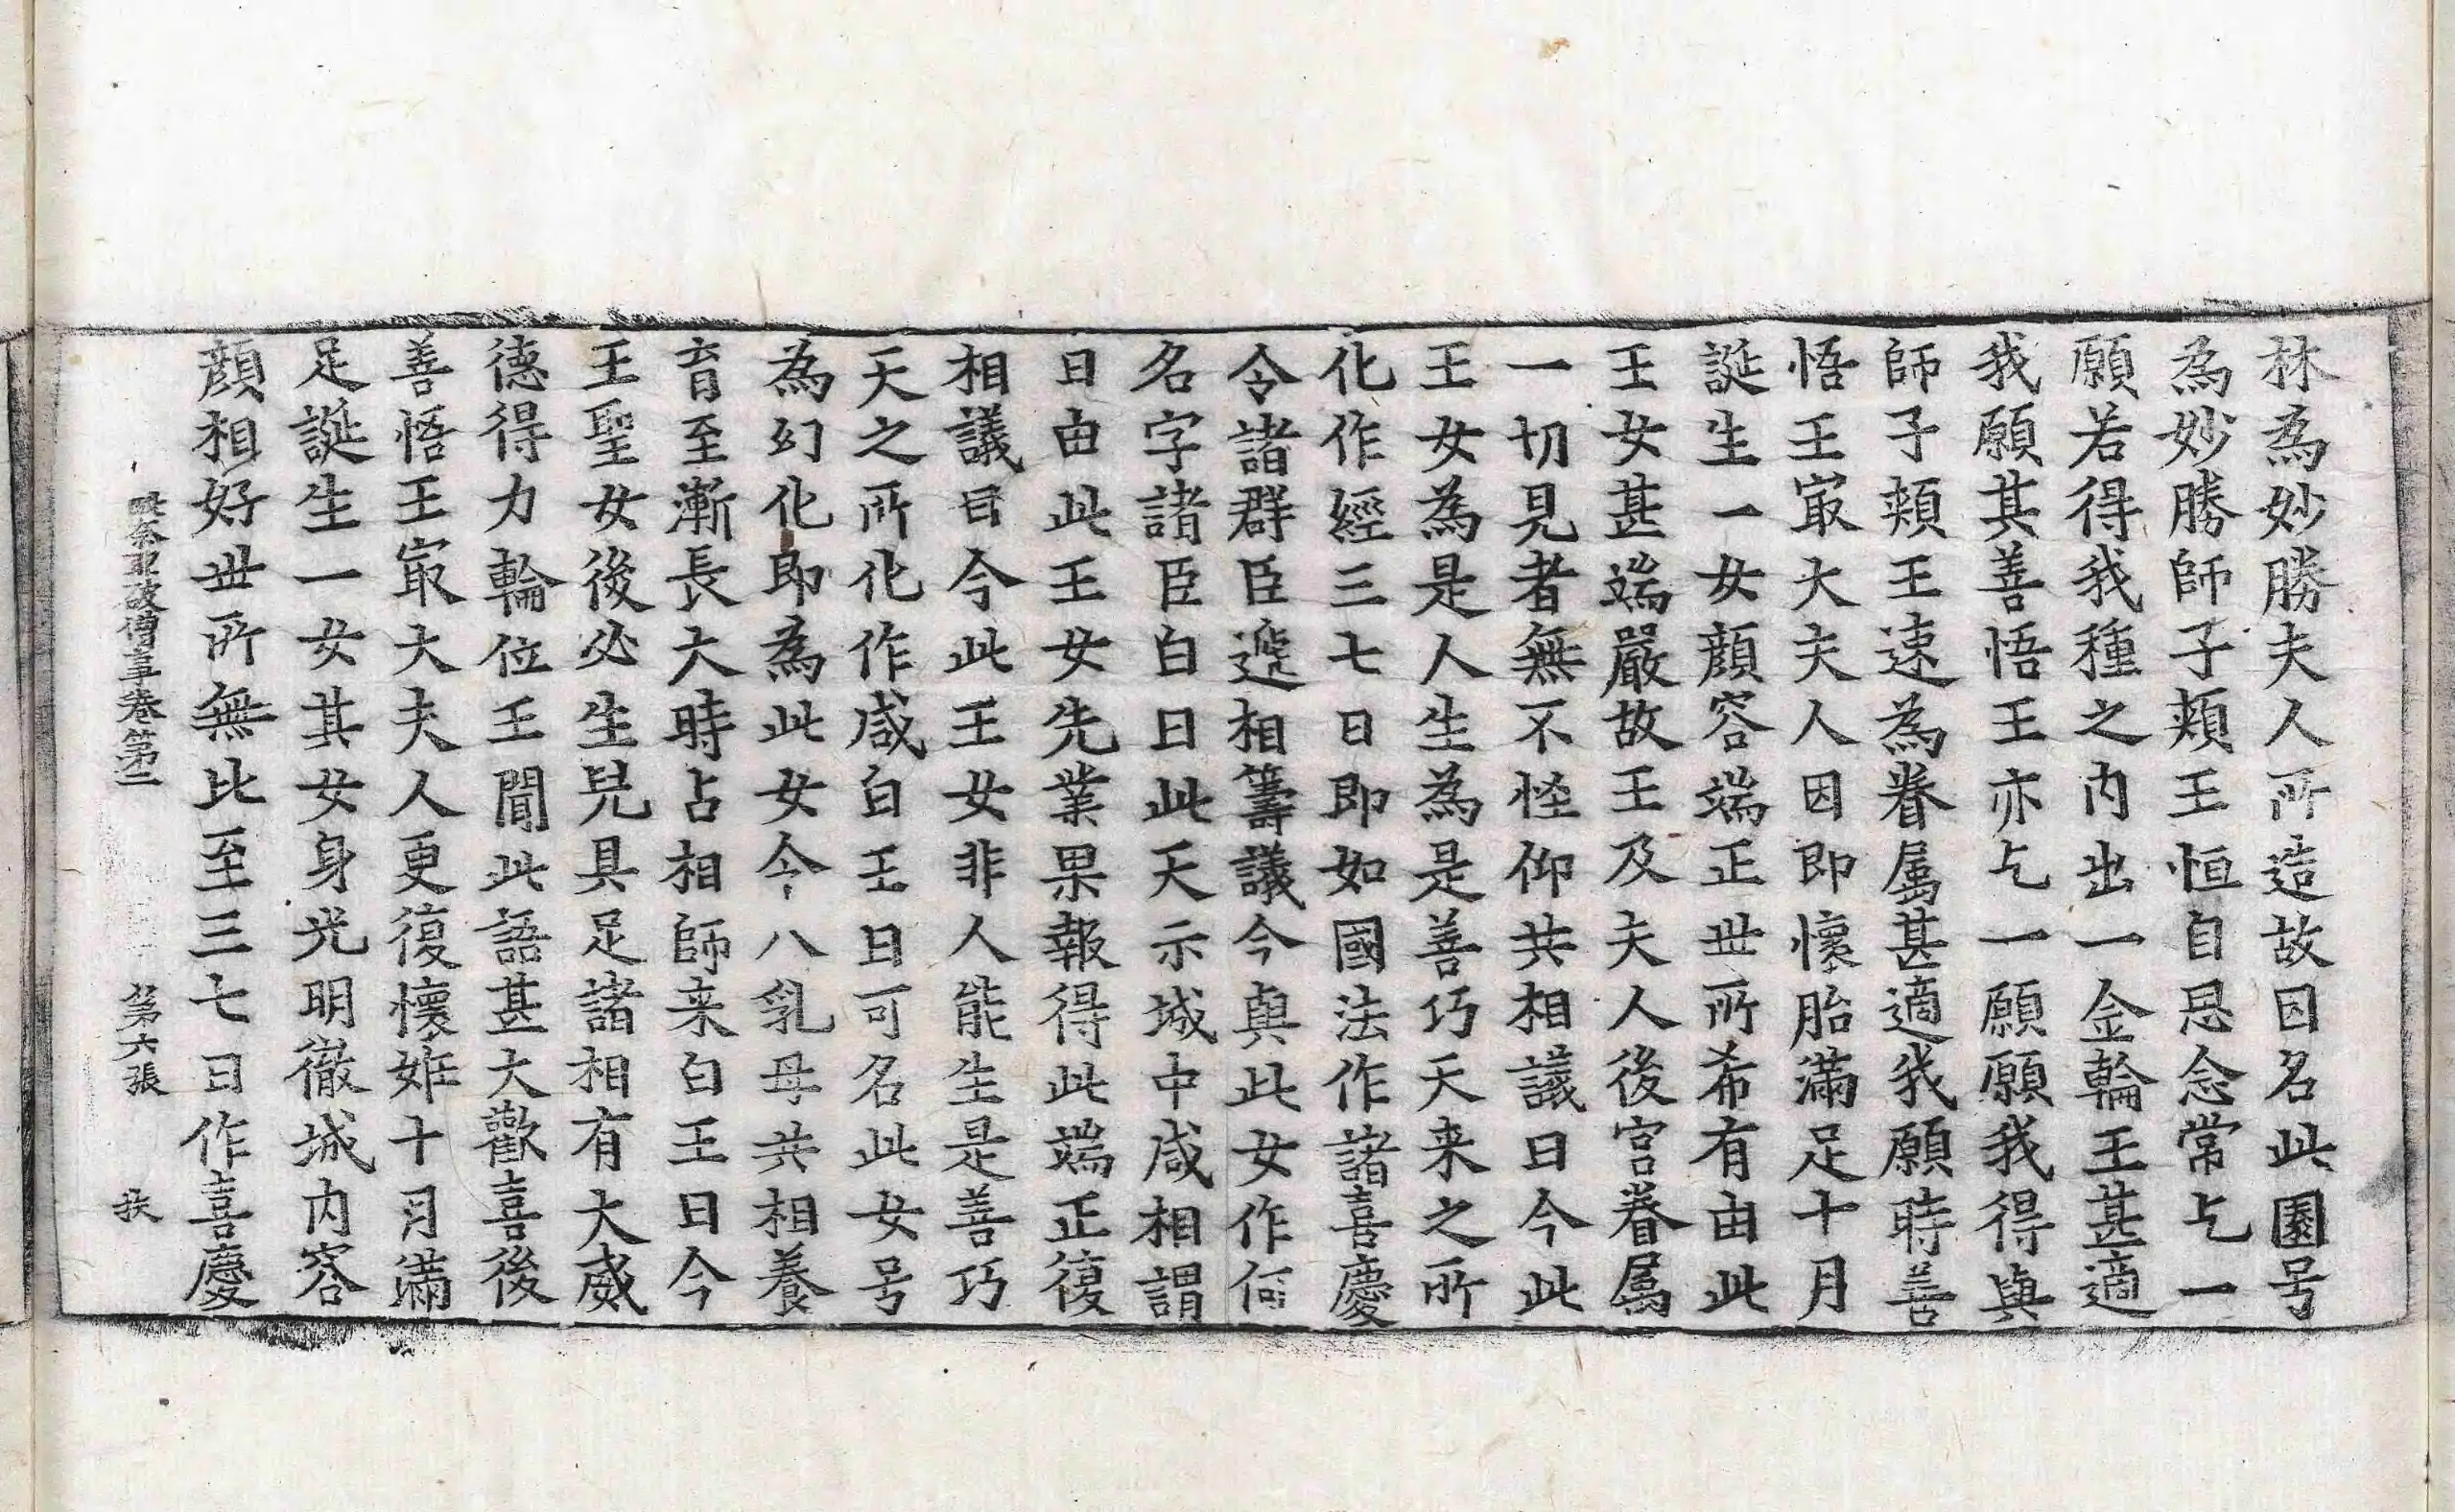 林為妙勝夫人所造故因名此園号
為妙勝師子頰王恒自思念常乞一
願若得我種之內出一金輪王甚適
我願其善悟王亦乞一願願我得與
師子頰王速為眷屬甚適我願時善
悟王㝡大夫人因即懷胎滿足十月
誕生一女顔容端正世所希有由此
王女甚端嚴故王及夫人後宮眷屬
一切見者無不怪仰共相議曰今此
王女為是人生為是善巧天来之所
化作經三七日即如國法作諸喜慶
令諸群臣遞相籌議今與此女作何
名字諸臣白曰此天示城中咸相謂
曰由此王女先業果報得此端正復
相議曰今此王女非人能生是善巧
天之所化作咸白王曰可名此女号
為幻化即為此女令八乳母共相養
育至漸長大時占相師来白王曰今
王聖女後必生皃具足諸相有大威
德得力輪位王聞此語甚大歡喜後
善悟王㝡大夫人更復懷姙十月滿
足誕生一女其女身光明徹城內容
顔相好世所無比至三七日作喜慶
破僧事卷第二 第六張